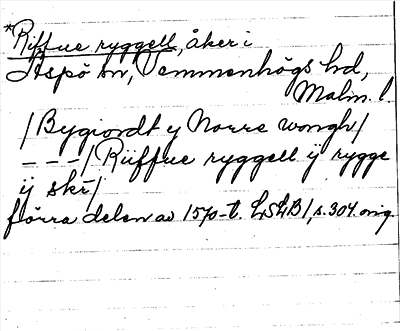 *Riffue ryggell, åker i
Äspö sn, Vemmenhögs hd,
Malm. l.
/Bygiordt y Norre wongh/
– – –/ Riiffue ryggell ÿ rygge
ÿ skr/
förra delen av 1570-t. LSLB 1, s. 304. orig.